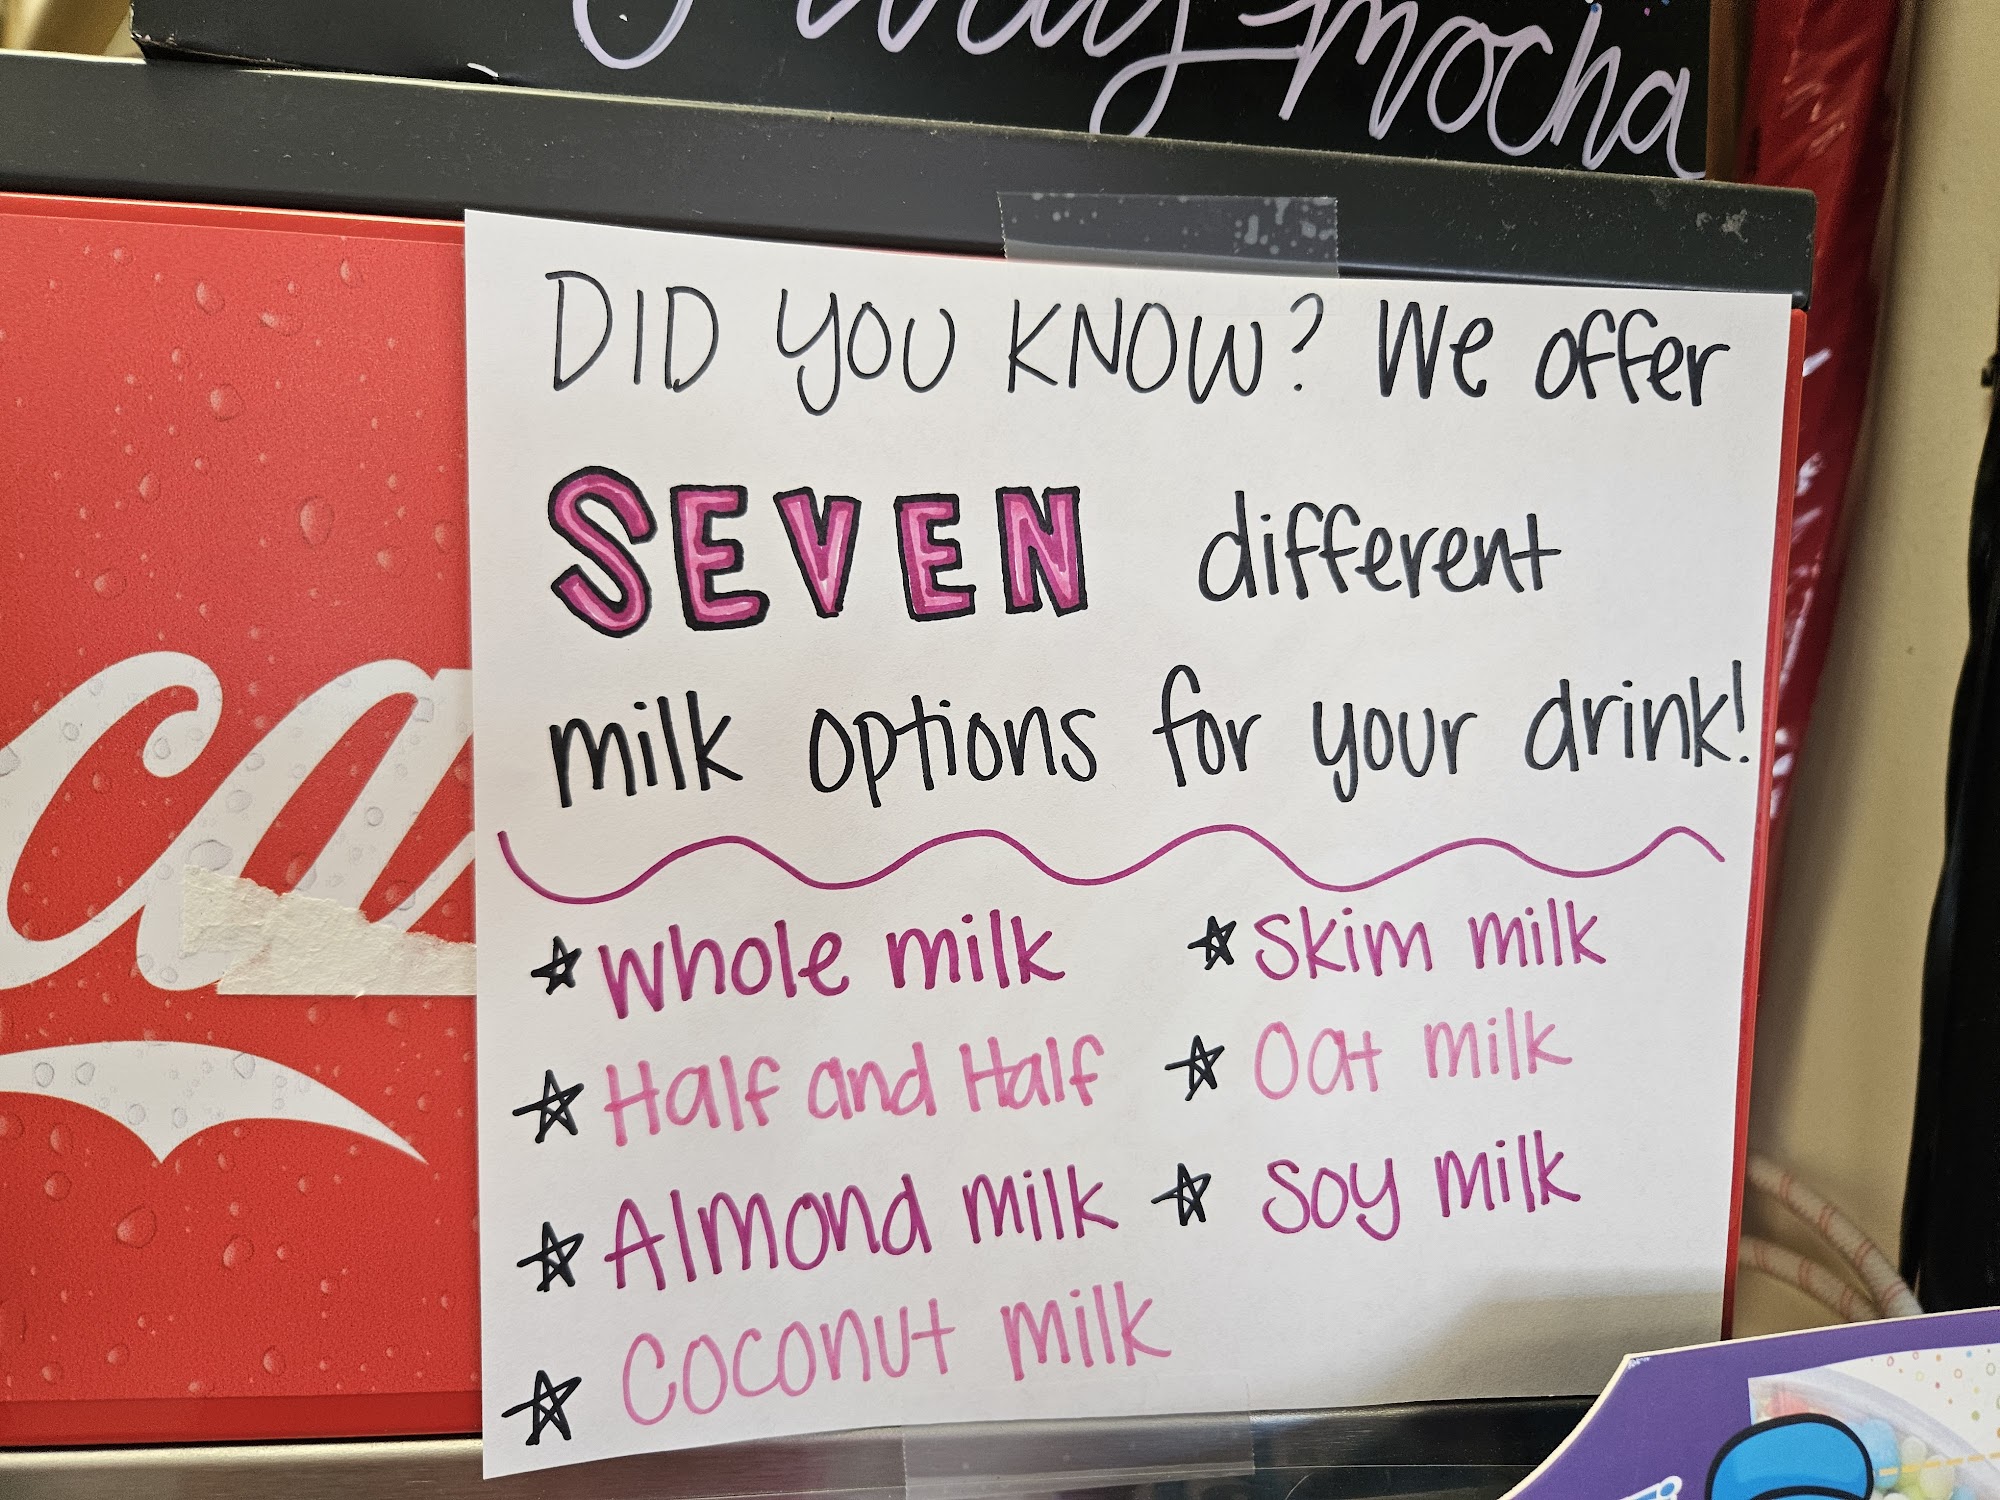 mocha
DID YOU KNOW? We offer
SEVEN different
milk options for your drink!
Whole milk
Skim milk
Half and Half
Oat milk
Almond milk
Soy milk
Coconut milk